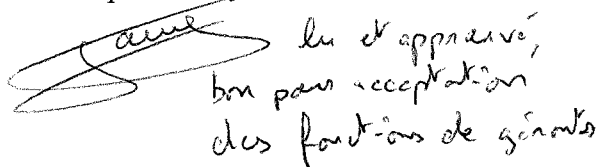 lu et approuvé,
bon pour acceptation
des fonctions de gérante